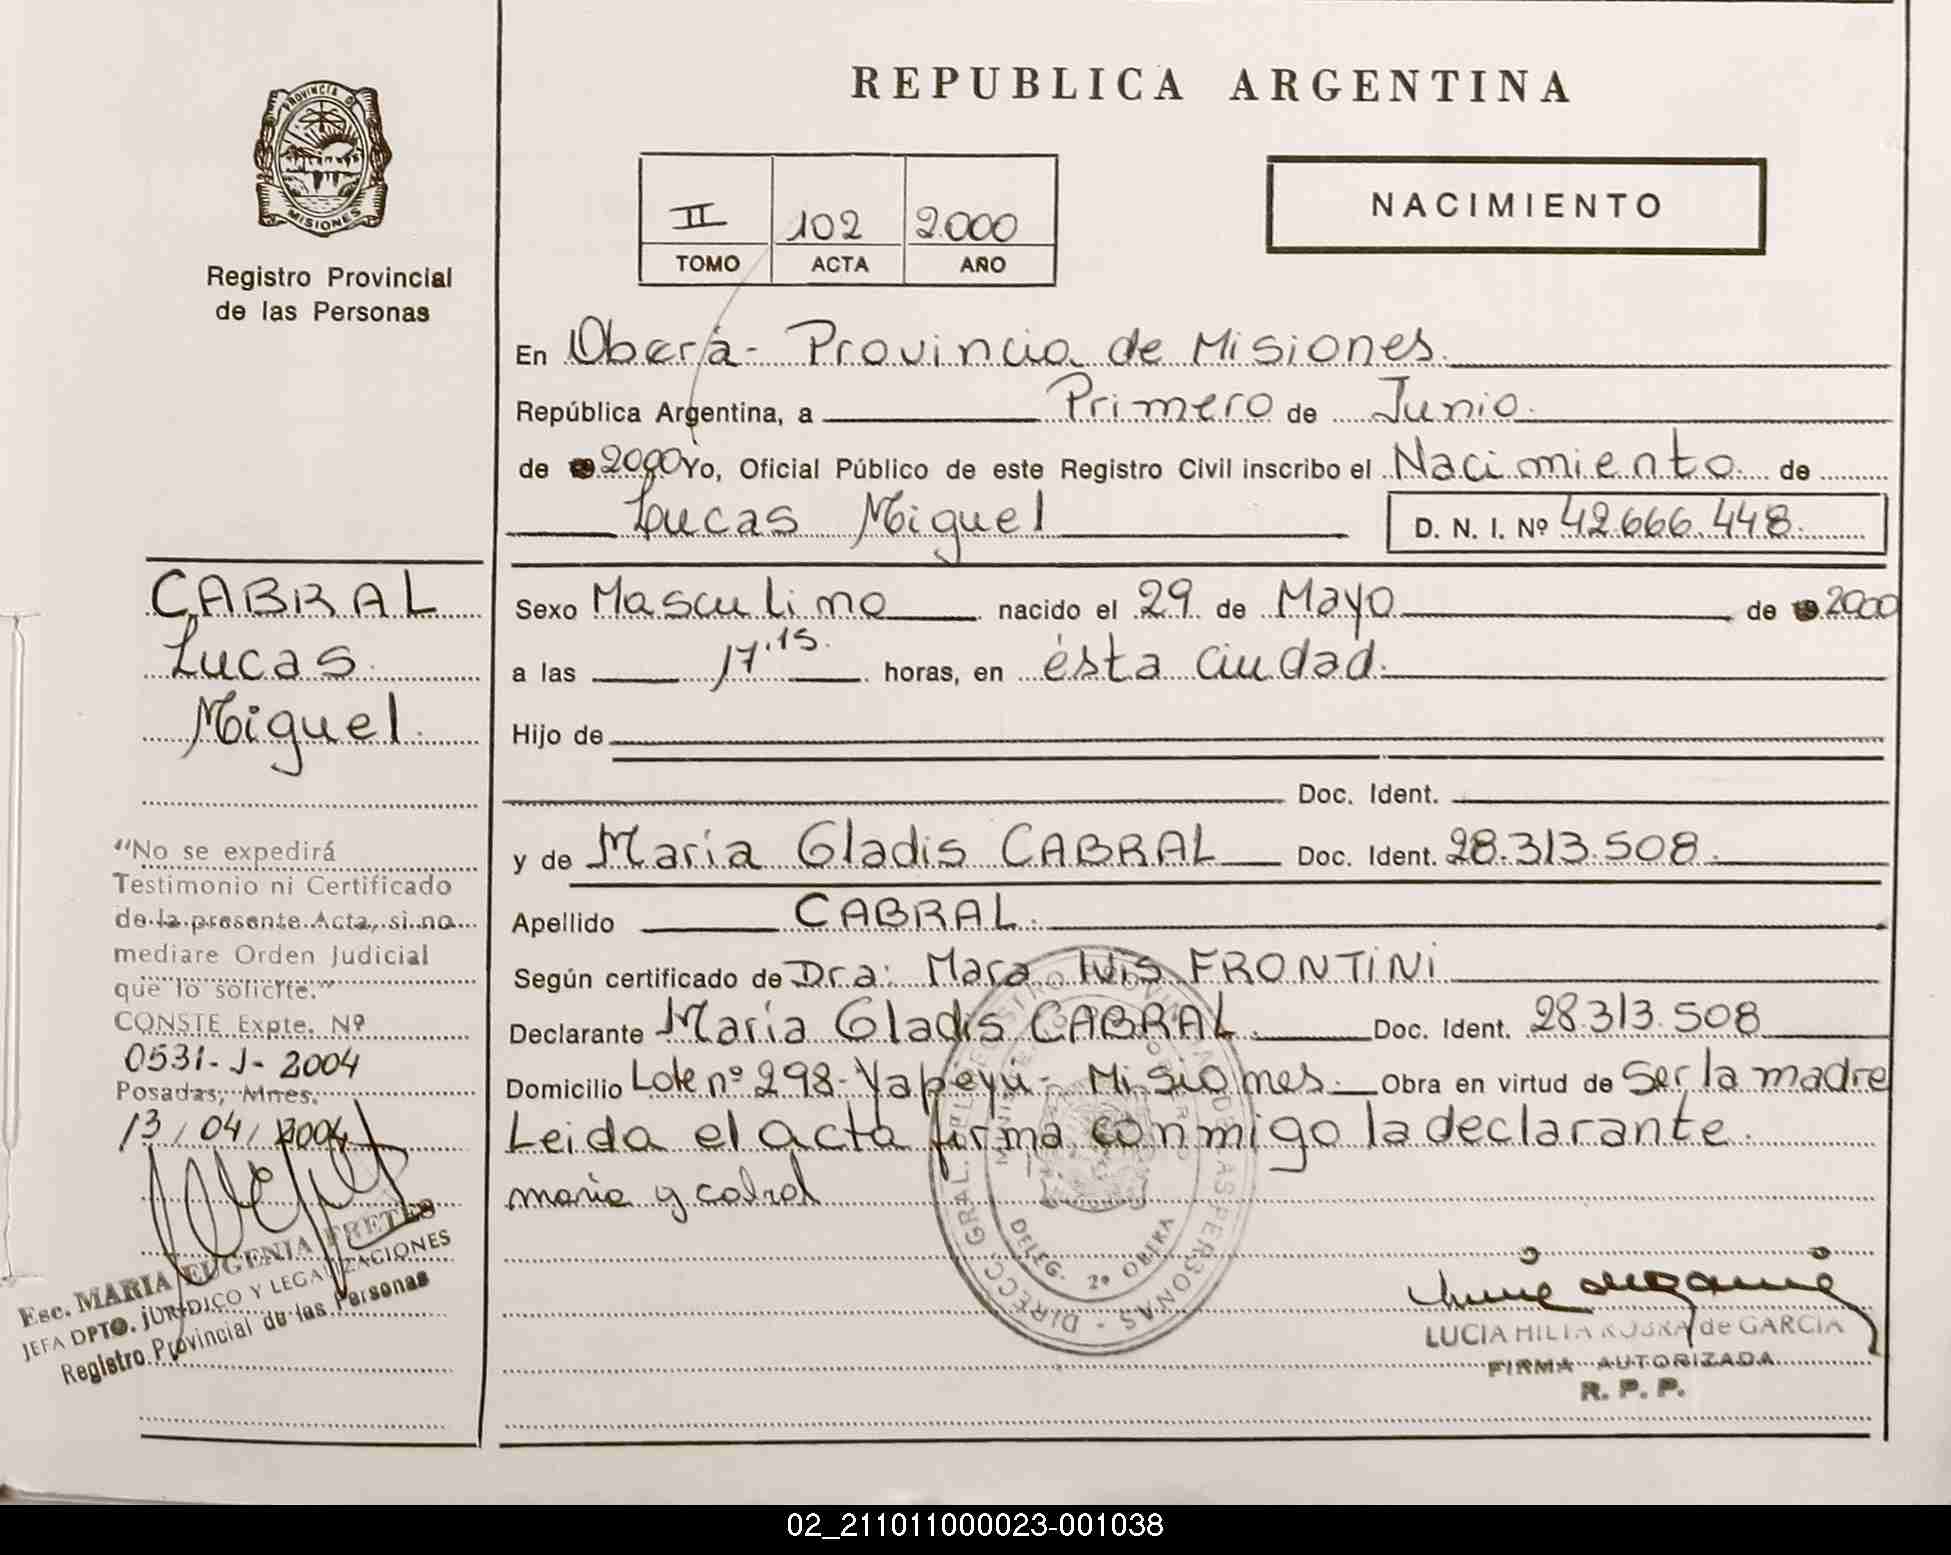 PROVINCIA D
MISIONES
Registro Provincial
de las Personas
REPUBLICA ARGENTINA
II 102 2.000
TOMO ACTA AÑO
NACIMIENTO
En Oberá - Provincia de Misiones.
República Argentina, a Primero de Junio.
de 2000 Yo, Oficial Público de este Registro Civil inscribo el Nacimiento de
Lucas Miguel D. N. I. Nº 42.666.448.
CABRAL
Lucas
Miguel.
Sexo Masculino nacido el 29 de Mayo de 2000
a las 17.15. horas, en ésta Ciudad.
Hijo de
Doc. Ident.
y de María Gladis CABRAL Doc. Ident. 28.313.508.
Apellido CABRAL.
Según certificado de Dra: Mara FRONTINI
Declarante María Gladis CABRAL. Doc. Ident. 28.313.508
Domicilio Lote nº 298 - Yapeyú - Misiones. Obra en virtud de Ser la madre
Leida el acta firma conmigo la declarante.
maria g cabral
"No se expedirá
Testimonio ni Certificado
de la presente Acta, si no
mediare Orden Judicial
que lo solicite."
CONSTE Expte. Nº
0531-J-2004
Posadas, Mnes.
13/04/2004
Esc. MARIA EUGENIA FRETES
JEFA DPTO. JURIDICO Y LEGALIZACIONES
Registro Provincial de las Personas
DELEG. 2º OBERA
LUCIA HILDA de GARCIA
FIRMA AUTORIZADA
R. P. P.
02_211011000023-001038